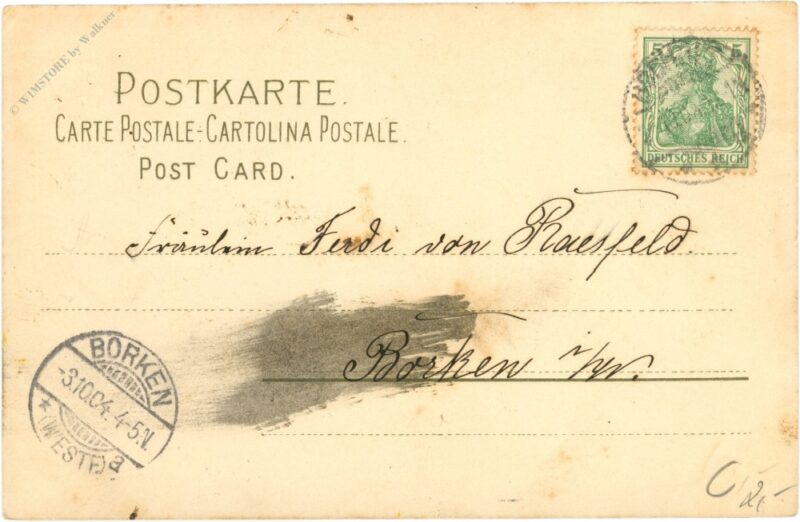 © WIMSTORE by Walkner
POSTKARTE.
CARTE POSTALE-CARTOLINA POSTALE.
POST CARD.
5 5
DEUTSCHES REICH
Fräulein Ferdi von Raesfeld.
Borken i/W.
BORKEN
-3.10.04. 4-5N.
* (WESTF) a